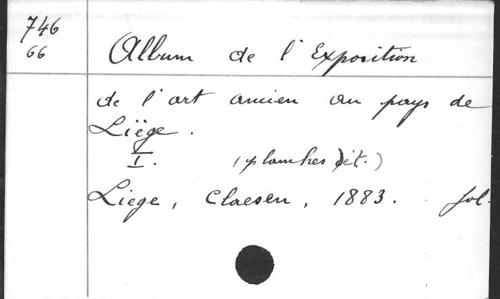 746
66
Album de l'Exposition
de l'art ancien au pays de
Liège.
I. (planches ét.)
Liege, Claesen, 1883. fol.